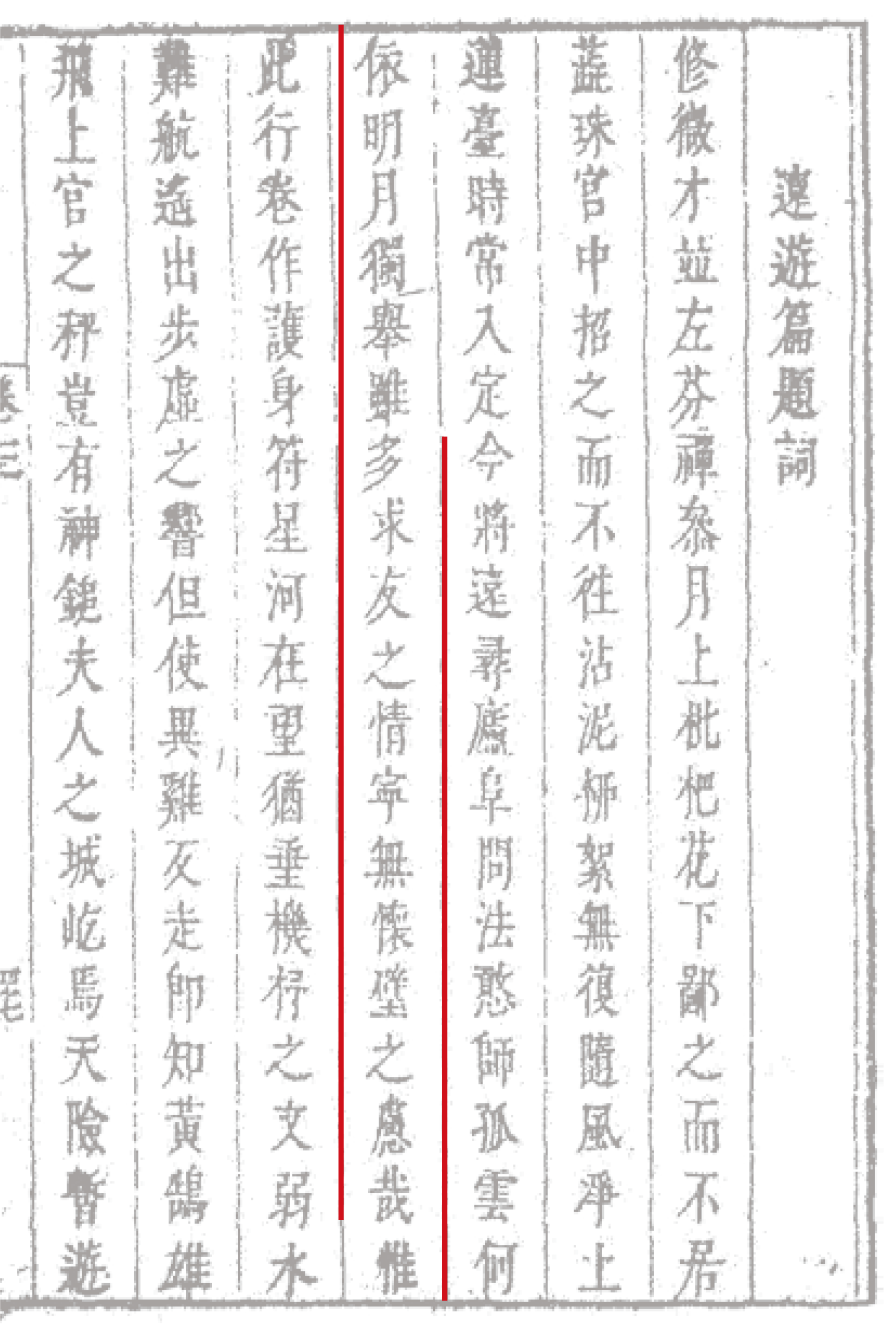 遠遊篇題詞
修微才並左芬禪叅月上枇杷花下鄙之而不居
蕋珠宮中招之而不往沾泥栁絮無復隨風淨土
蓮臺時常入定今將遠尋廬阜問法憨師孤雲何
依明月獨舉雖多求友之情寧無懷璧之慮哉惟
此行卷作護身符星河在望猶垂機杼之文弱水
難航遙出步虛之響但使異雞反走卽知黃鵠雄
飛上官之秤豈有神鎚夫人之城屹焉天險暫遊
卷三